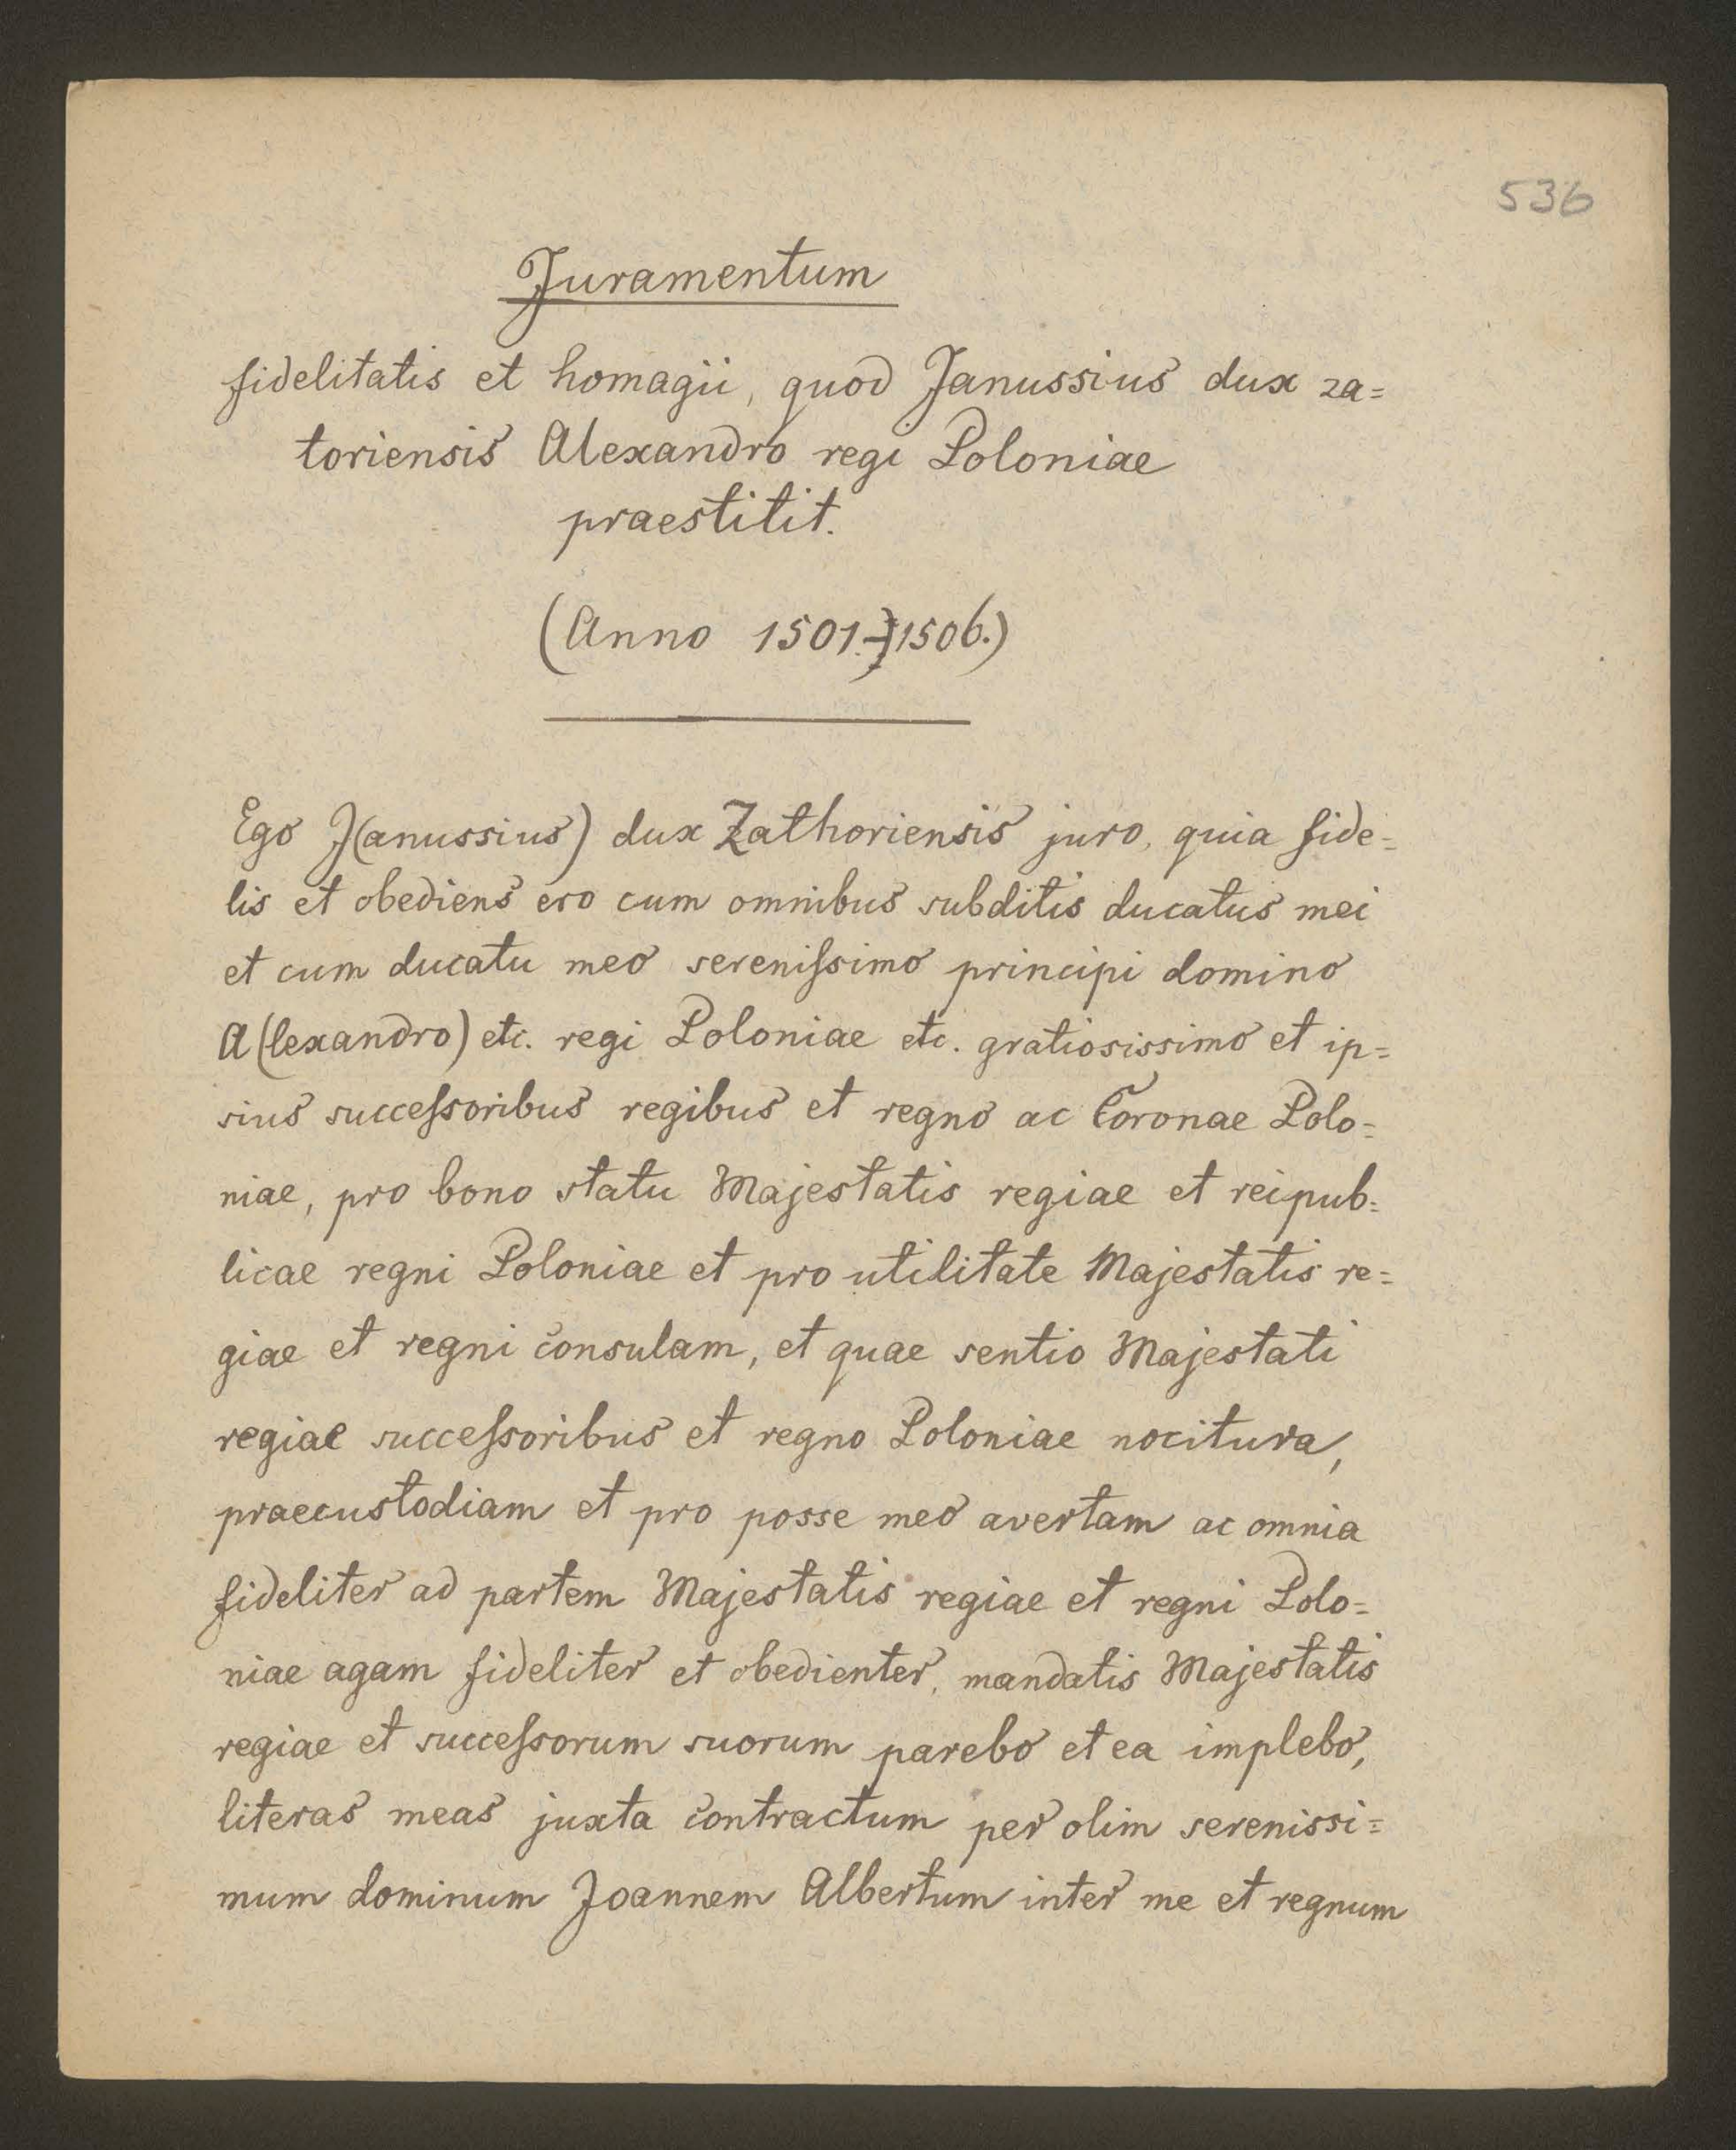 536
Juramentum
fidelitatis et homagii, quod Janussius dux za=
toriensis Alexandro regi Poloniae
praestitit.
(Anno 1501.-1506.)
Ego J(anussius) dux Zathoriensis juro, quia fide=
lis et obediens ero cum omnibus subditis ducatus mei
et cum ducatu meo sereniſsimo principi domino
A(lexandro) etc. regi Poloniae etc. gratiosissimo et ip=
sius succeſsoribus regibus et regno ac Coronae Polo=
niae, pro bono statu Majestatis regiae et reipub=
licae regni Poloniae et pro utilitate Majestatis re=
giae et regni consulam, et quae sentio Majestati
regiae succeſsoribus et regno Poloniae nocitura,
praecustodiam et pro posse meo avertam ac omnia
fideliter ad partem Majestatis regiae et regni Polo=
niae agam fideliter et obedienter, mandatis Majestatis
regiae et succeſsorum suorum parebo et ea implebo,
literas meas juxta contractum per olim serenissi=
mum dominum Joannem Albertum inter me et regnum